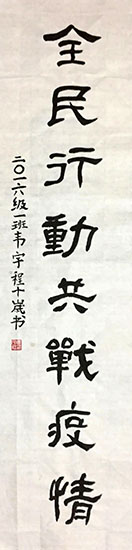 全民行動共戰疫情
二〇一六级一班韦宇程十歲书